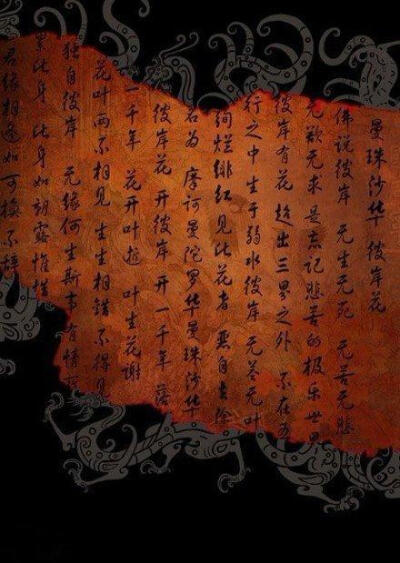 曼珠沙华 彼岸花
佛说彼岸 无生无死 无苦无悲
无欲无求 是忘记悲苦的极乐世界
彼岸有花 超出三界之外 不在五
行之中 生于弱水彼岸 无茎无叶
绚烂绯红 见此花者 恶自去除
名为 摩诃曼陀罗华曼珠沙华
彼岸花 开彼岸 开一千年 落
一千年 花开叶 叶生花谢
花叶两不相见 生生相错 不得见
独自彼岸 无缘何生斯世有情
累此身 此身如朝露惟惜
君缘相逢如可换不辞